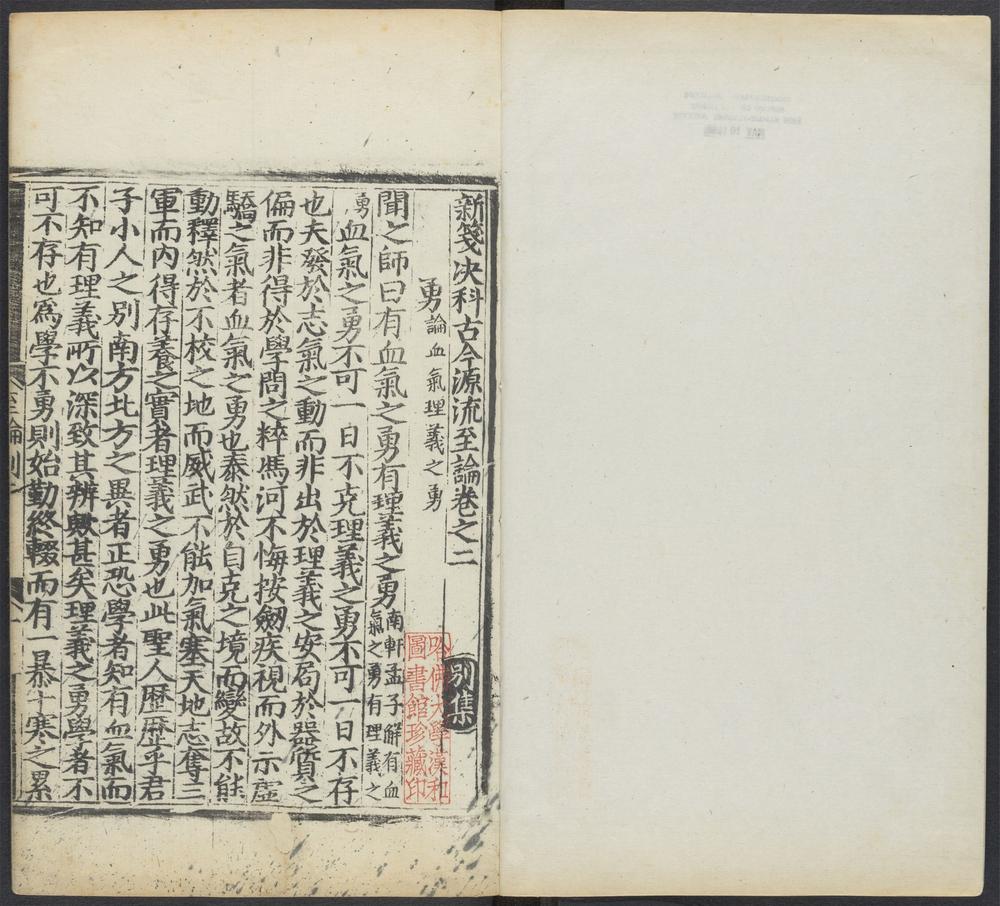 新箋决科古今源流至論卷之二
別集
勇 論血氣理義之勇
聞之師曰有血氣之勇有理義之勇 南軒孟子解有血氣之勇有理義之
勇 血氣之勇不可一日不克理義之勇不可一日不存
也夫發於志氣之動而非出於理義之安局於器質之
偏而非得於學問之粹馮河不悔按劒疾視而外示虛
驕之氣者血氣之勇也泰然於自克之境而變故不能
動釋然於不校之地而威武不能加氣塞天地志奪三
軍而内得存養之實者理義之勇也此聖人歷歷乎君
子小人之別南方北方之異者正恐學者知有血氣而
不知有理義所以深致其辨歟甚矣理義之勇學者不
可不存也為學不勇則始勤終輟而有一暴十寒之累
哈佛大學漢和
圖書館珍藏印
至論別
二